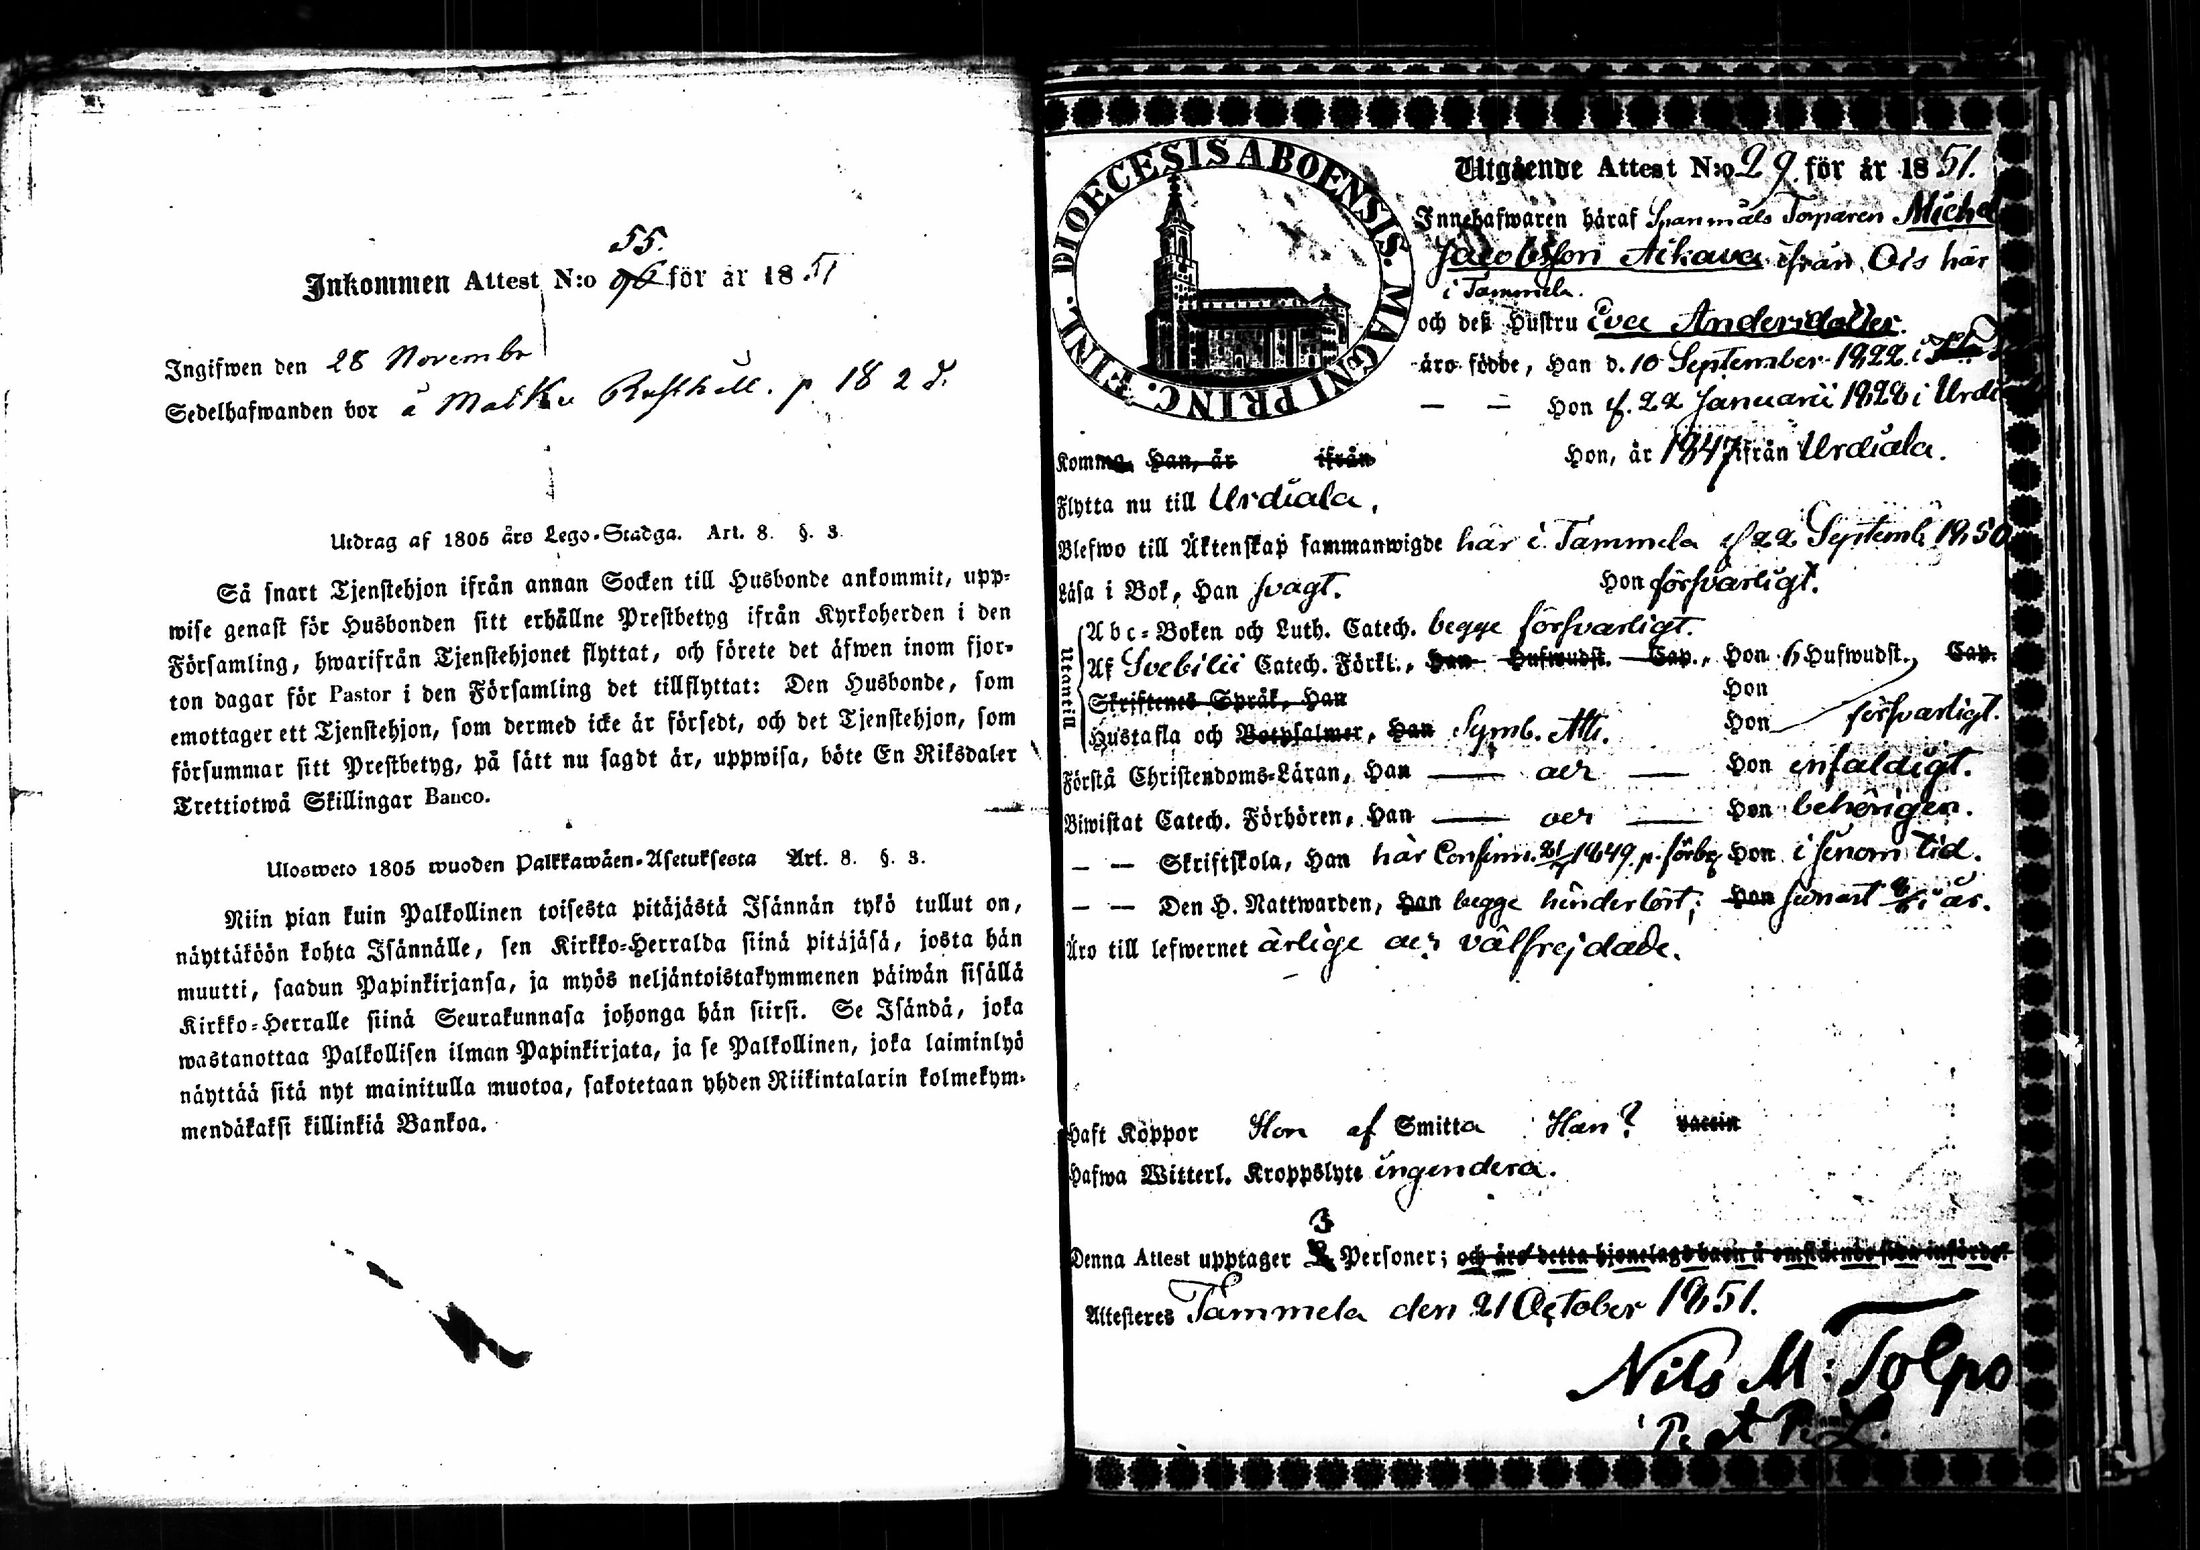 55.
Inkommen Attest N:o 96 för år 1851
Ingifwen den 28 Novembr
Sedelhafwanden bor å p. 182
Utdrag af 1805 års Lego-Stadga. Art. 8. §. 3.
Så snart Tjenstehjon ifrån annan Socken till Husbonde ankommit, upp-
wise genast för Husbonden sitt erhållne Prestbetyg ifrån Kyrkoherden i den
Församling, hwarifrån Tjenstehjonet flyttat, och förete det äfwen inom fjor-
ton dagar för Pastor i den Församling det tillflyttat: Den Husbonde, som
emottager ett Tjenstehjon, som dermed icke är försedt, och det Tjenstehjon, som
försummar sitt Prestbetyg, på sätt nu sagdt är, uppwisa, böte En Riksdaler
Trettiotwå Skillingar Banco.
Ulosweto 1805 wuoden Palkkawäen-Asetuksesta Art. 8. §. 3.
Niin pian kuin Palkollinen toisesta pitäjästä Isännän tykö tullut on,
näyttäköön kohta Isännälle, sen Kirkko-Herralda siinä pitäjäsä, josta hän
muutti, saadun Papinkirjansa, ja myös neljäntoistakymmenen päiwän sisällä
Kirkko-Herralle siinä Seurakunnasa johonga hän siirsi. Se Isändä, joka
wastanottaa Palkollisen ilman Papinkirjata, ja se Palkollinen, joka laiminlyö
näyttää sitä nyt mainitulla muotoa, sakotetaan yhden Riikintalarin kolmekym-
mendäkaksi killinkiä Bankoa.
DIOECESIS ABOENSIS. MAGNI PRINC. FINL.
Utgående Attest N:o 29. för år 1851.
Innehafwaren häraf Spanmåls Torparen Michel
Jacobsson Aikava ifrån Ois här
i Tammela.
och deß Hustru Eva Andersdotter.
äro födde, Han d. 10 September 1822. i
— — Hon d. 22 Januarii 1828 i Urdi
Komma Han, år ifrån Hon, år 1847 ifrån Urdiala.
Flytta nu till Urdiala.
Blefwo till Äktenskap sammanwigde här i Tammela d. 22 Septemb. 1850
Läsa i Bok, Han svagt. Hon försvarligt.
Utantill
Abc-Boken och Luth. Catech. begge försvarligt.
Af Svebilii Catech. Förkl., Han Hufwudst. Cap., Hon 6 Hufwudst., Cap.
Skriftenes Språk, Han Hon
Hustafla och Botpsalmer, Han Symb. Ath. Hon försvarligt.
Förstå Christendoms-Läran, Han — och — Hon enfaldigt.
Biwistat Catech. Förhören, Han — och — Hon behörigen.
— — Skriftskola, Han här Confirm. 1849. p. förbg Hon i sinom tid.
— — Den H. Nattwarden, Han begge hinderlöst; Hon senast i år.
Äro till lefwernet ärlige och välfrejdade.
Haft Koppor Hon af Smitta Han? vaccin
Hafwa Witterl. Kroppslyte ingendera.
3
Denna Attest upptager 2 Personer; och äro detta hjonelags barn å omstående sida införde.
Attesteres Tammela den 21 October 1851.
Nils M: Tolpo
P. et P. L.